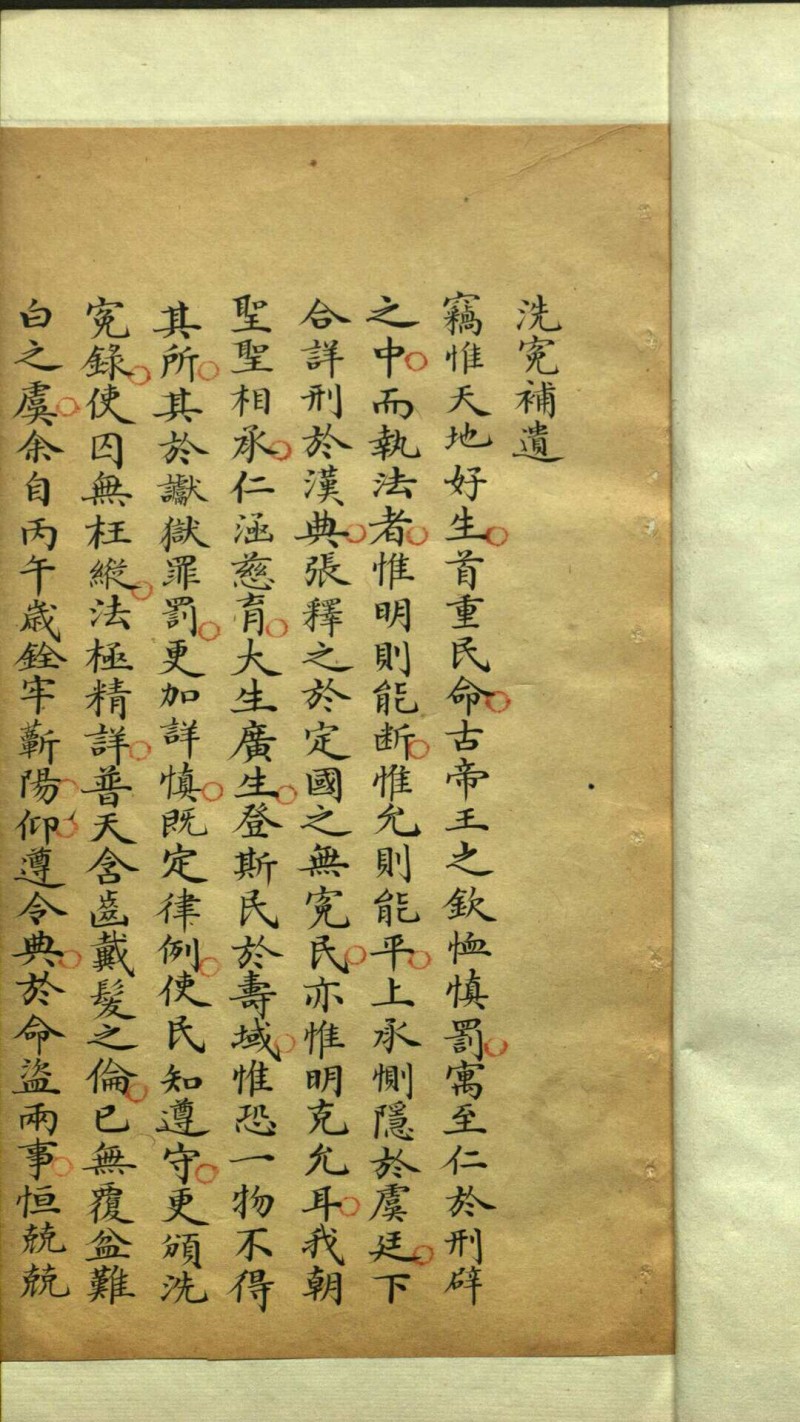 洗寃補遺
竊惟天地好生首重民命古帝王之欽恤慎罰寓至仁於刑辟
之中而執法者惟明則能断惟允則能平上承惻隱於虞廷下
合詳刑於漢典張釋之於定國之無寃民亦惟明克允耳我朝
聖聖相承仁涵慈育大生廣生登斯民於壽域惟恐一物不得
其所其於讞獄罪罰更加詳慎既定律例使民知遵守更頒洗
寃錄使囚無枉縱法極精詳普天含齒戴髮之倫已無覆盆難
白之虞余自丙午歳銓牢蘄陽仰遵令典於命盜兩事恒兢兢